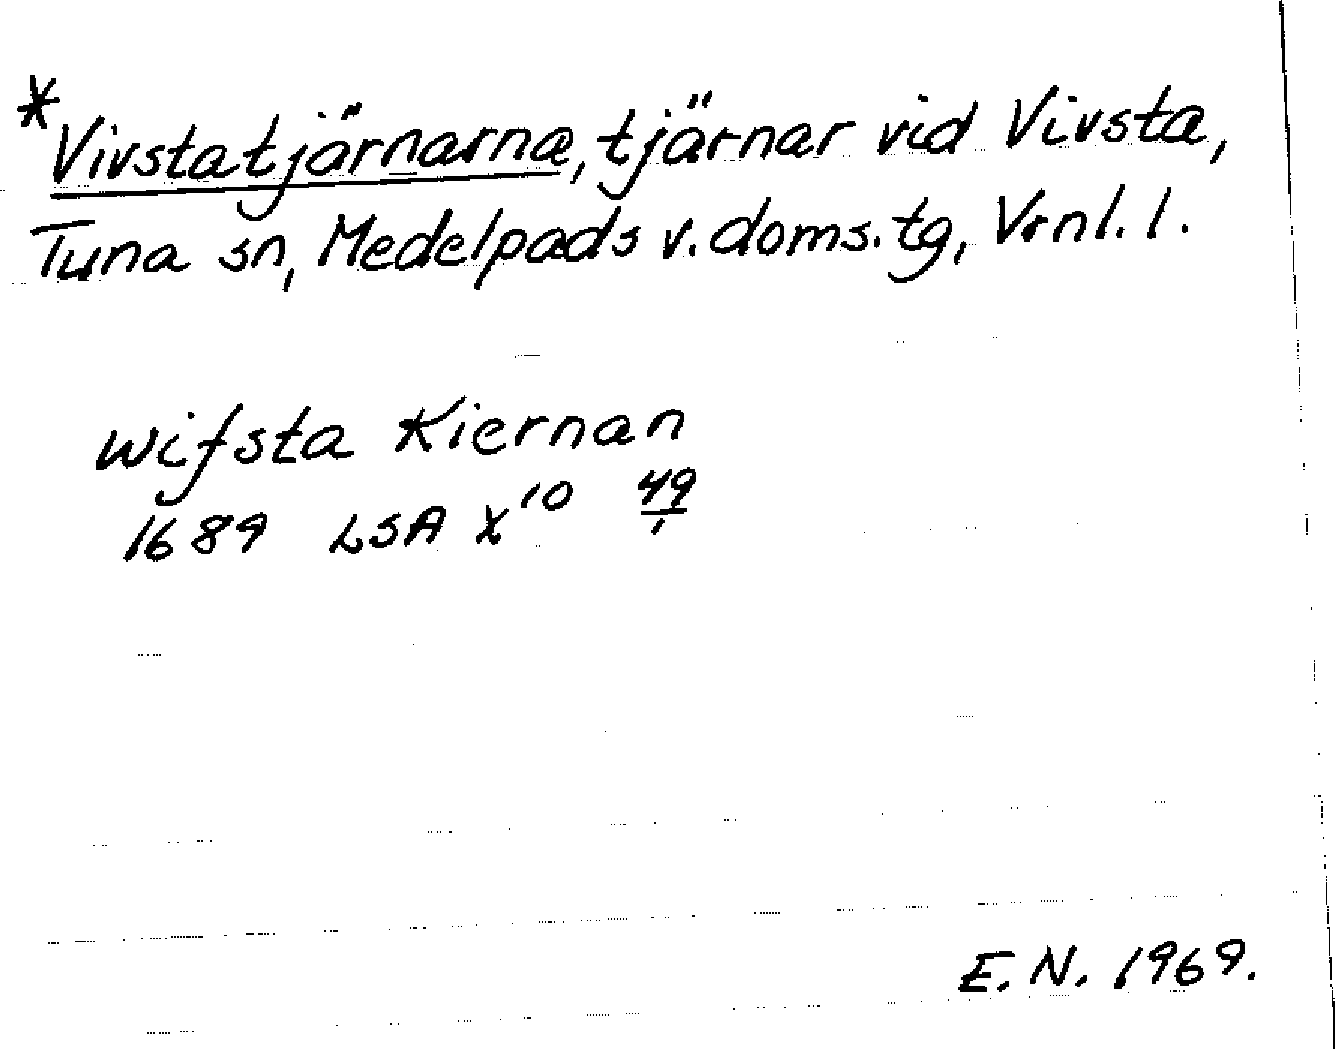 *Vivstatjärnarna, tjärnar vid Vivsta,
Tuna sn, Medelpads v. doms. tg, Vrnl. l.
Wifsta Kiernan
1689 LSA X¹⁰ 49/1
E. N. 1969.